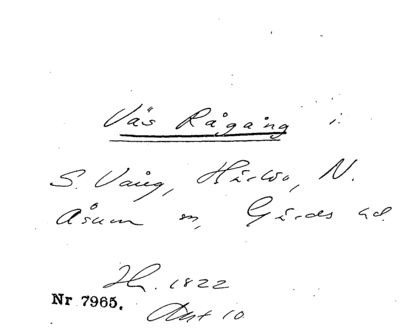 Vås Rågång i.
S. Vång, N.
Åsum m, Gärds hd.
1822
Nr 7965.
Akt 10